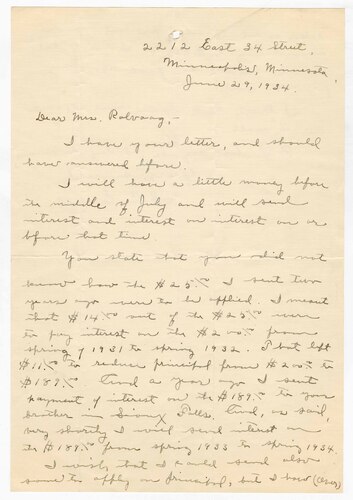 2212 East 34 Street,
Minneapolis, Minnesota,
June 29, 1934.
Dear Mrs. Rolvaag,-
I have your letter, and should
have answered before.
I will have a little money before
the middle of July and will send
interest and interest on interest on or
before that time.
You state that you did not
know how the $25.00 I sent two
years ago were to be applied. I meant
that $14.00 out of the $25.00 were
to pay interest on the $200.00 from
spring of 1931 to spring 1932. That left
$11.00 to reduce principal from $200.00 to
$189.00. And a year ago I sent
payment of interest on the $189.00 to your
brother in Sioux Falls. And, as said,
very shortly I will send interest on
the $189.00 from spring 1933 to spring 1934.
I wish, that I could send also
some to apply on principal, but I have (over)